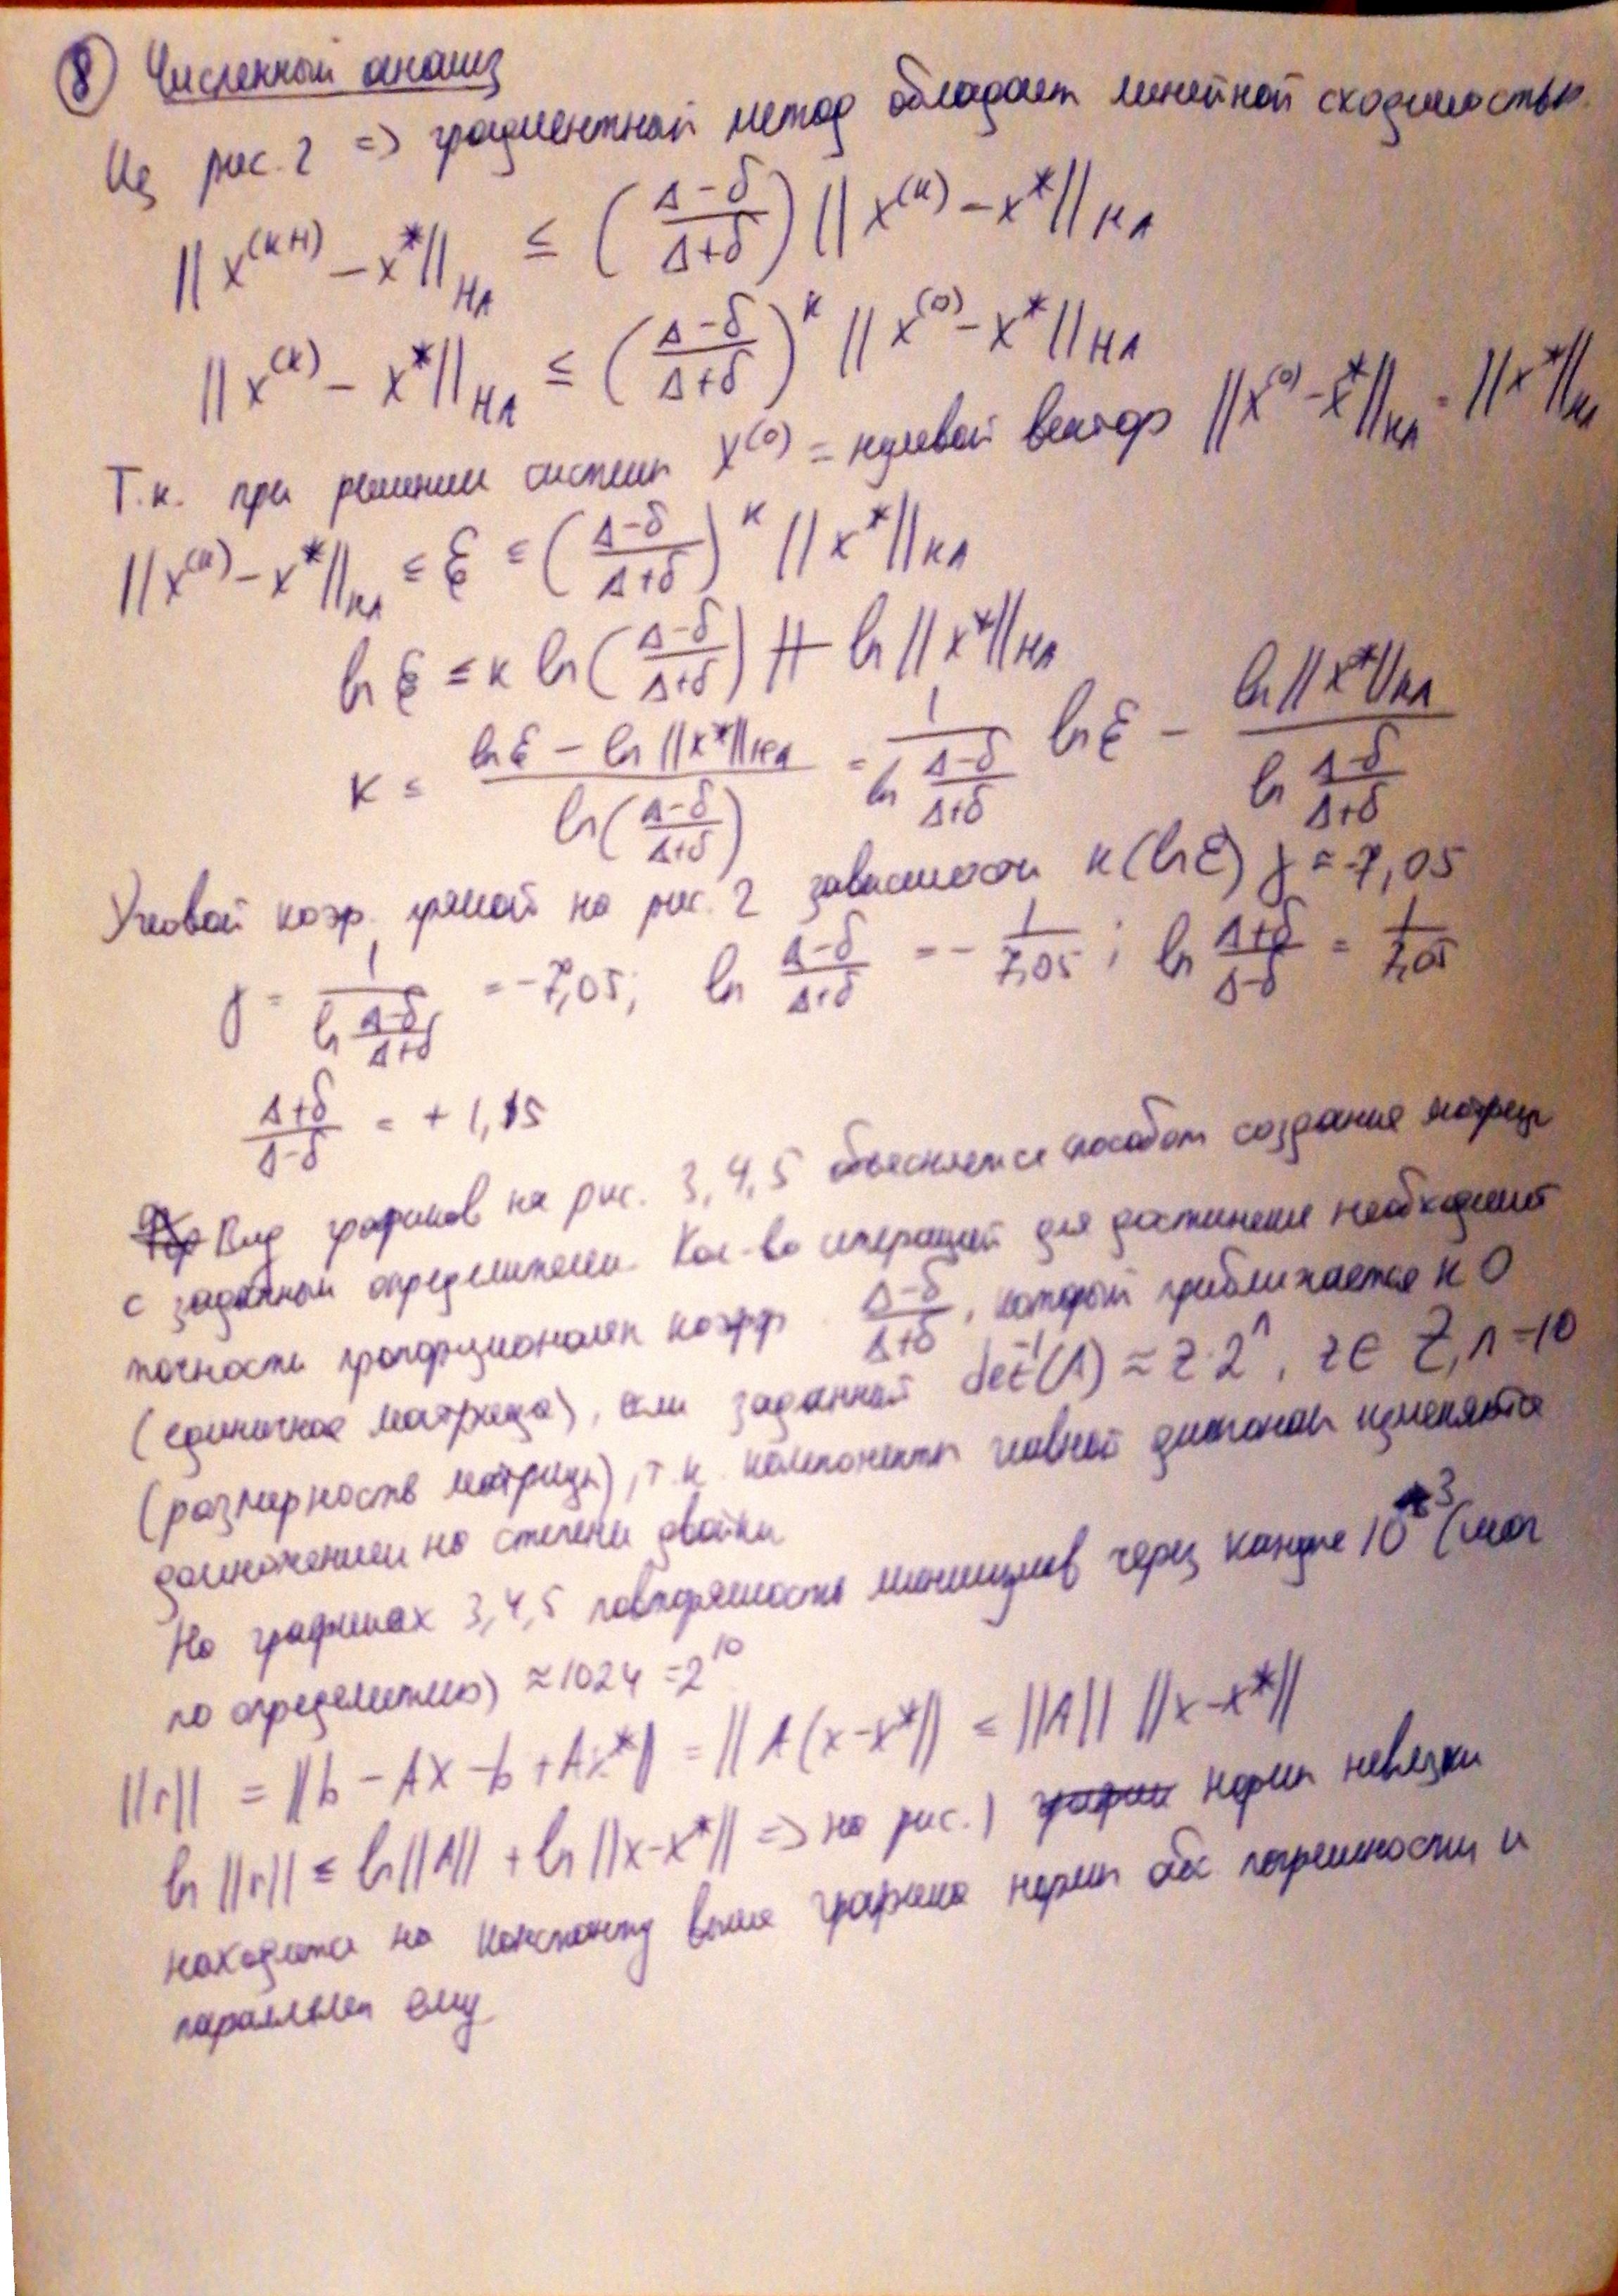 ⑧ Численный анализ
Из рис. 2 => градиентный метод обладает линейной сходимостью.
||x^(k+1) − x*||_HA ≤ ((Δ−δ)/(Δ+δ)) ||x^(k) − x*||_HA
||x^(k) − x*||_HA ≤ ((Δ−δ)/(Δ+δ))^k ||x^(0) − x*||_HA
Т.к. при решении систем x^(0) = нулевой вектор ||x^(0) − x*||_HA = ||x*||_HA
||x^(k) − x*||_HA ≤ ℰ ≤ ((Δ−δ)/(Δ+δ))^k ||x*||_HA
ln ℰ ≤ k ln((Δ−δ)/(Δ+δ)) + ln ||x*||_HA
k ≤ (ln ℰ − ln ||x*||_HA)/(ln((Δ−δ)/(Δ+δ))) = 1/(ln (Δ−δ)/(Δ+δ)) ln ℰ − (ln ||x*||_HA)/(ln (Δ−δ)/(Δ+δ))
Угловой коэф. прямой на рис. 2 зависимости k(ln ℰ) γ = −7,05
γ = 1/(ln (Δ−δ)/(Δ+δ)) = −7,05; ln (Δ−δ)/(Δ+δ) = − 1/7,05; ln (Δ+δ)/(Δ−δ) = 1/7,05
(Δ+δ)/(Δ−δ) = + 1,15
Вид графиков на рис. 3, 4, 5 объясняется способом создания матриц
с заданным определителем. Кол-во итераций для достижения необходимой
точности пропорционален коэфф. (Δ−δ)/(Δ+δ), который приближается к 0
(единичная матрица), если заданный det⁻¹(A) ≈ z·2ⁿ, z ∈ Z, n = 10
(размерность матрицы), т.к. компоненты главной диагонали изменяются
домножением на степени двойки
На графиках 3, 4, 5 повторяемость минимумов через каждые 10³ (шаг
по определителю) ≈ 1024 = 2¹⁰
||r|| = ||b − Ax − b + Ax*|| = ||A(x − x*|| ≤ ||A|| ||x − x*||
ln ||r|| ≤ ln ||A|| + ln ||x − x*|| => на рис. 1 график норм невязки
находится на константу выше графика норм абс погрешности и
параллелен ему